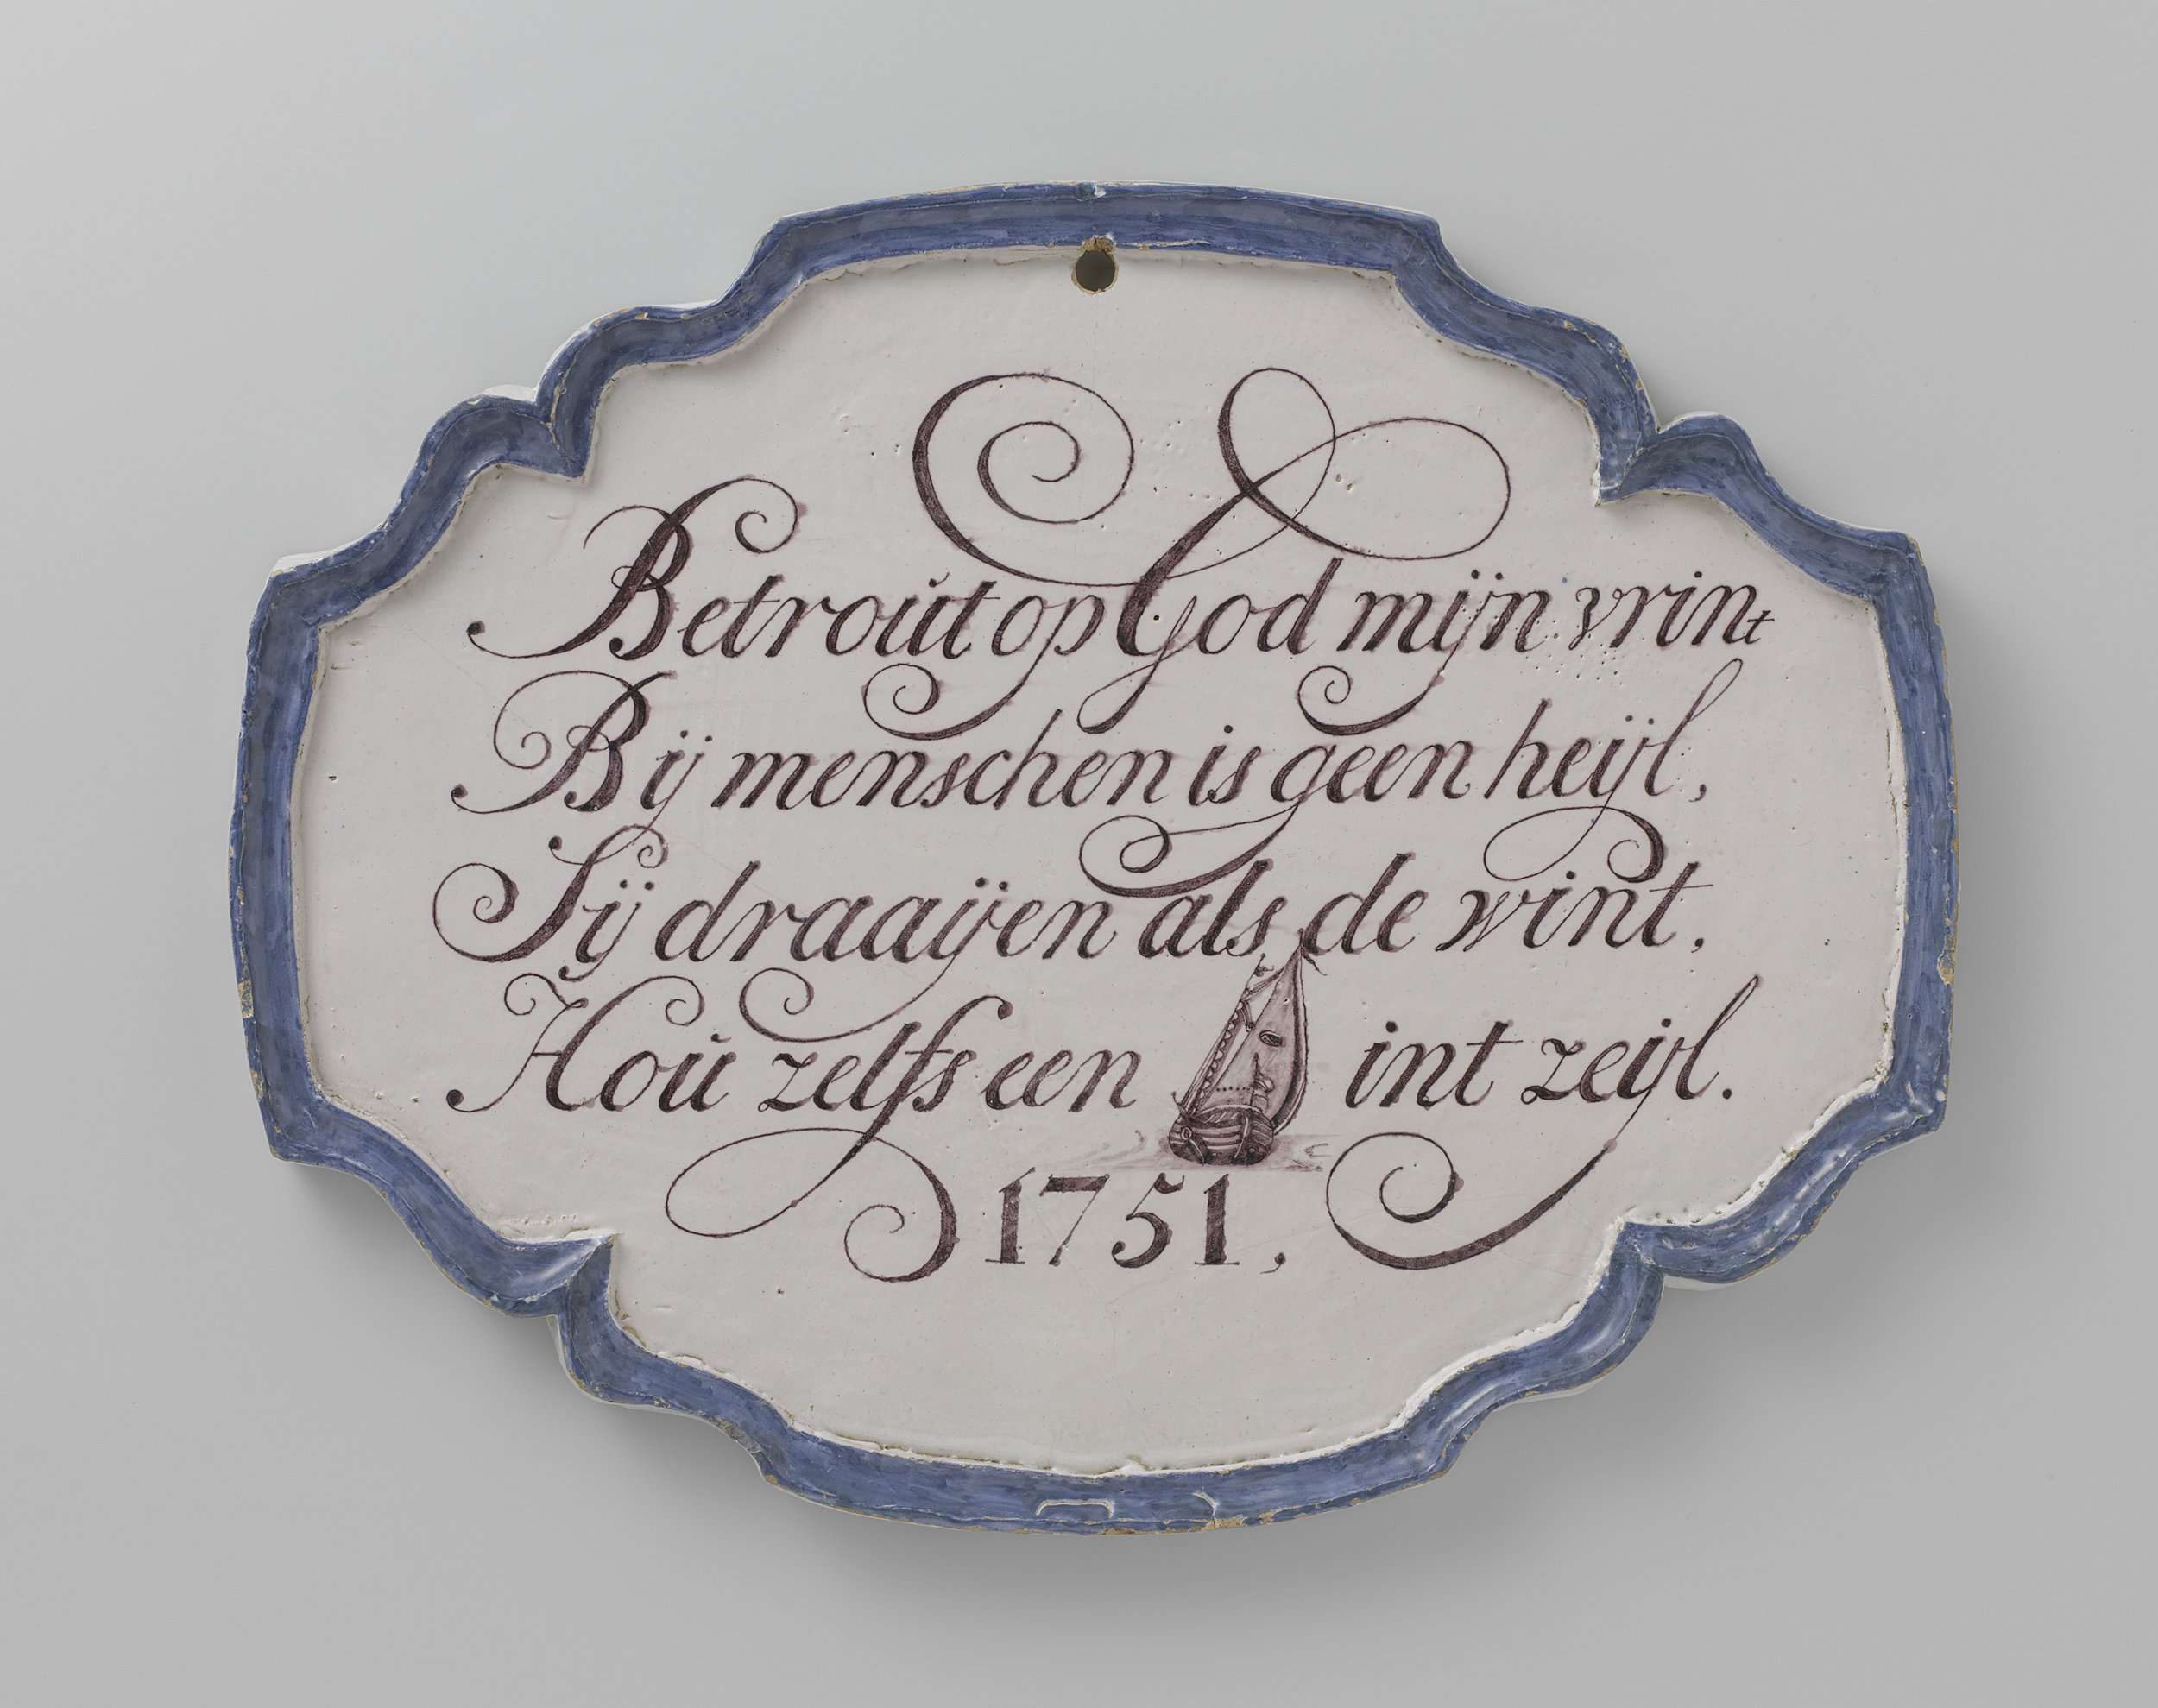 Betroŭt op God mijn vrint
Bij menschen is geen heijl,
Sij draaijen als de wint,
Hoŭ zelfs een int zeijl.
1751,